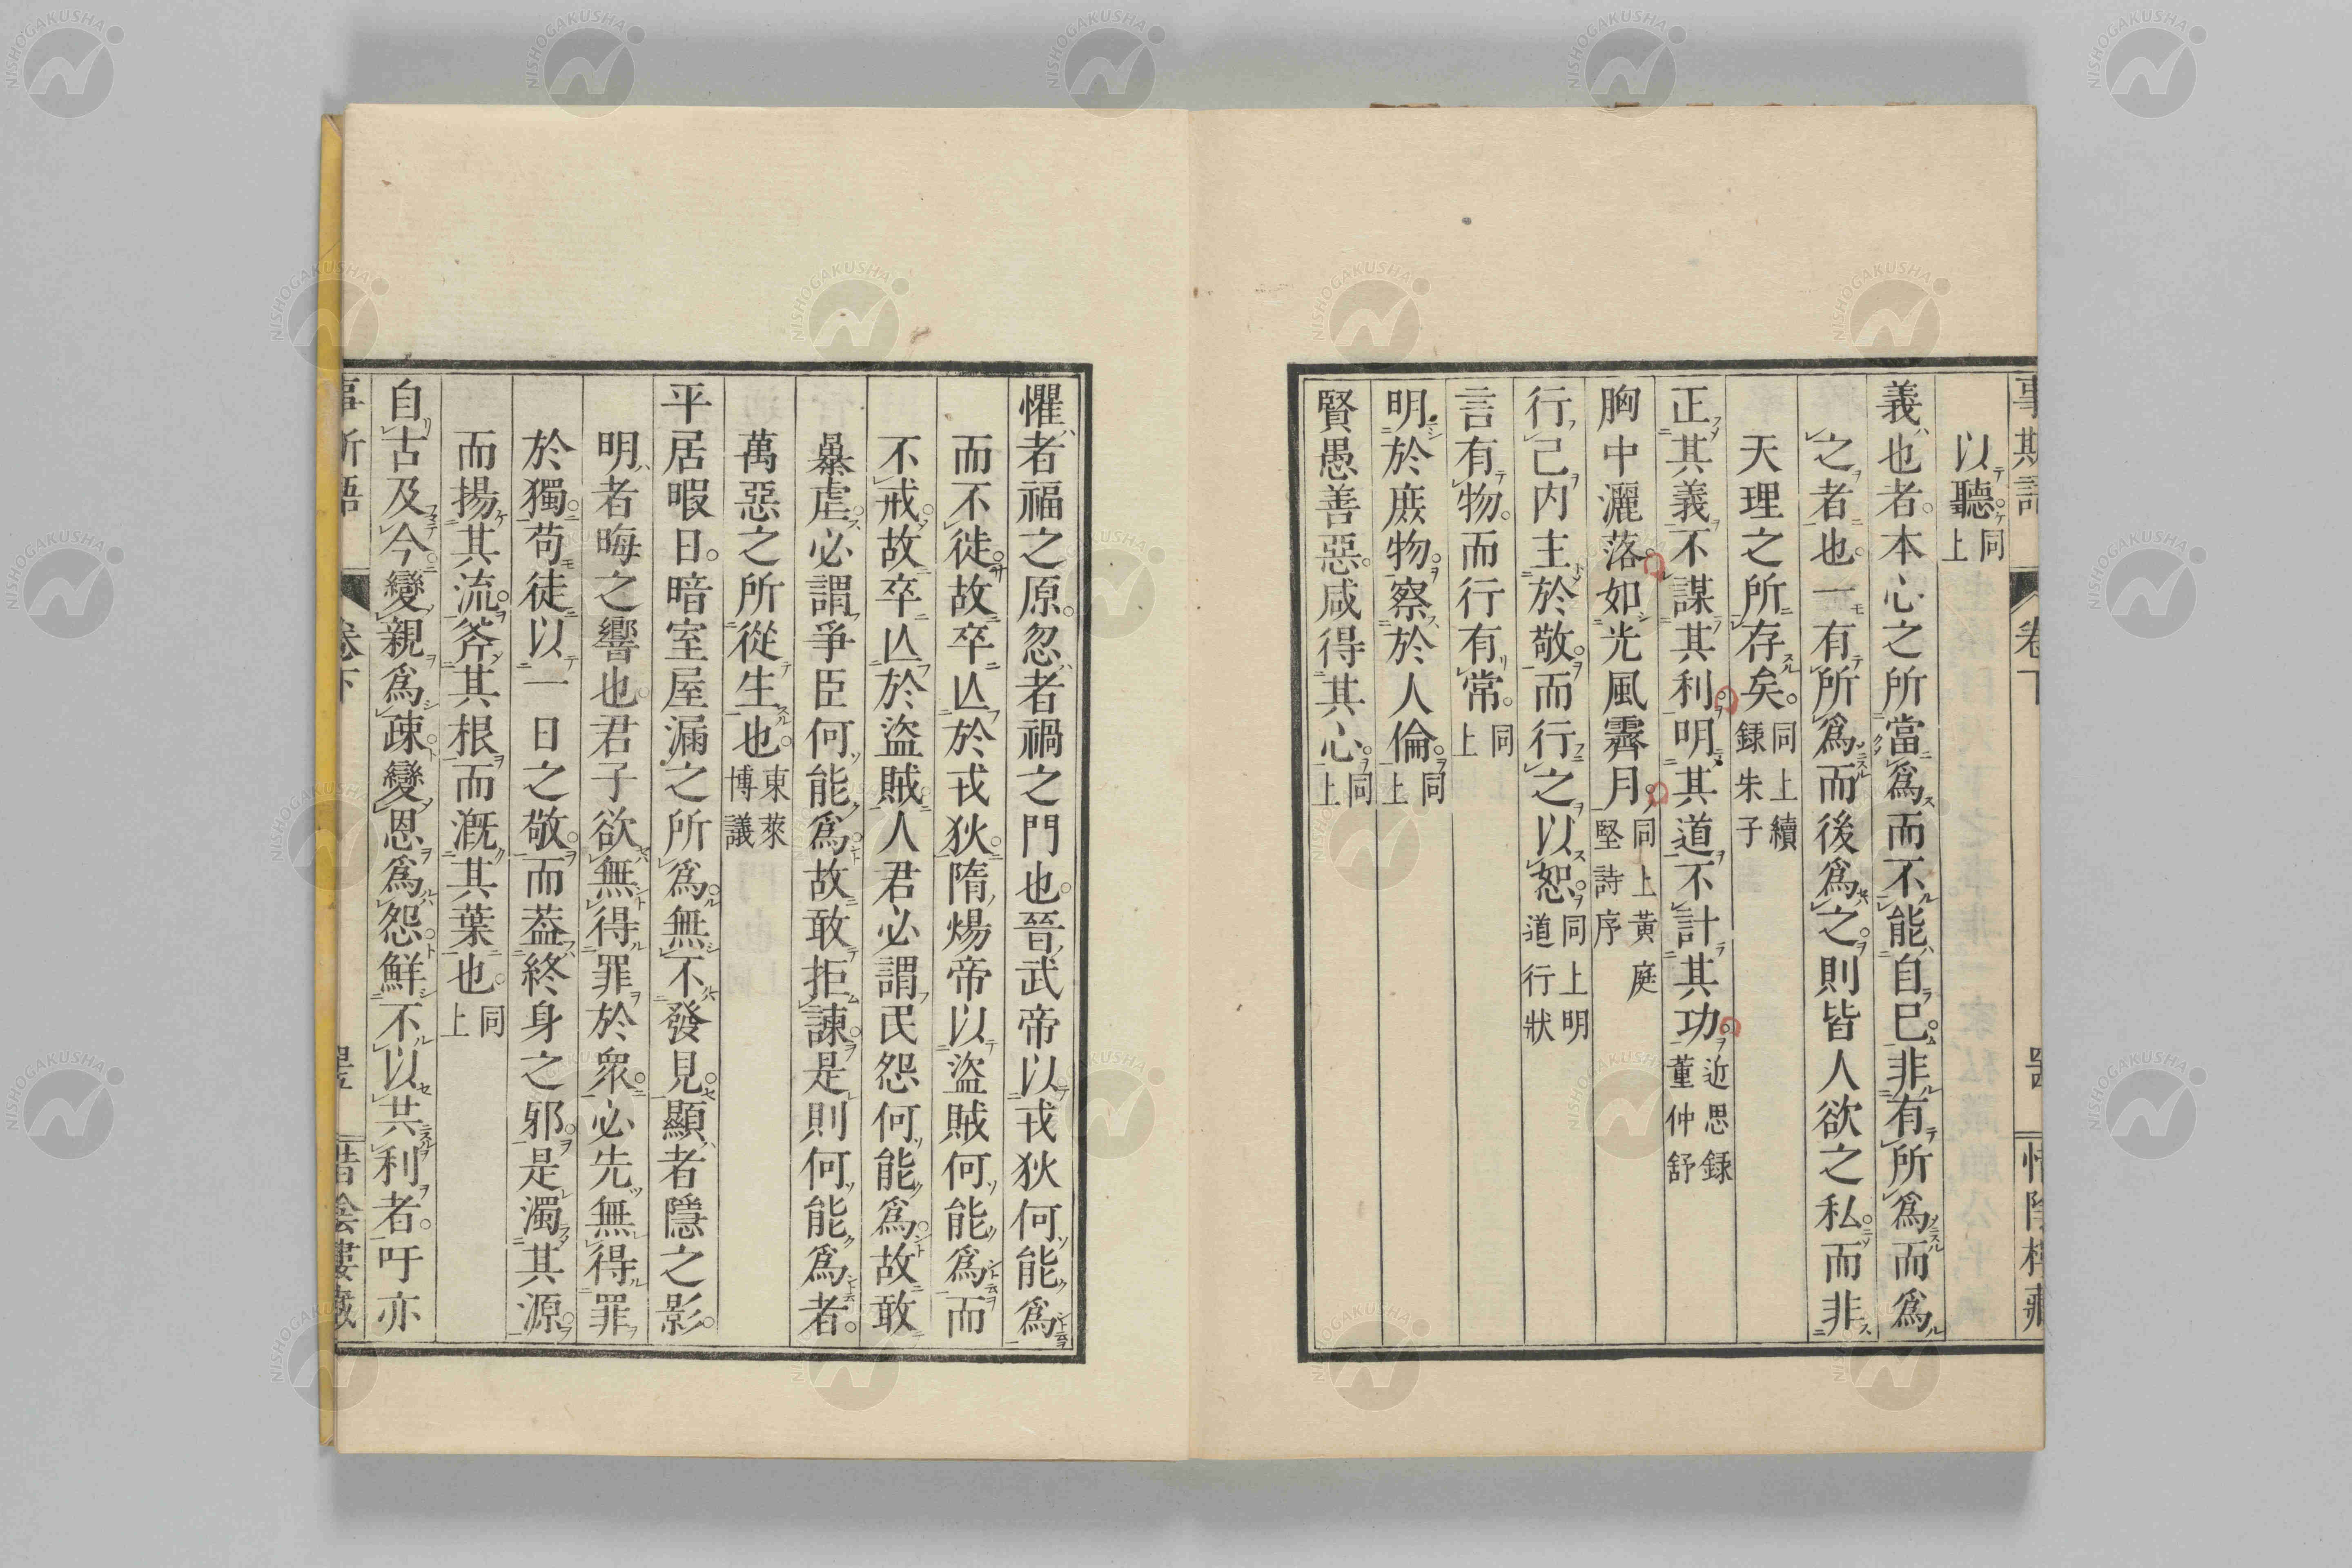 事斯語 卷下
以聽同上
義也者本心之所當爲而不能自已非有所爲而爲
之者也一有所爲而後爲之則皆人欲之私而非
天理之所存矣同上續錄朱子
正其義不謀其利明其道不計其功近思錄董仲舒
胸中灑落如光風霽月同上黃庭堅詩序
行己内主於敬而行之以恕同上明道行狀
言有物而行有常同上
明於庶物察於人倫同上
賢愚善惡咸得其心同上
懼者福之原忽者禍之門也晉武帝以戎狄何能爲
而不徙故卒亾於戎狄隋煬帝以盜賊何能爲而
不戒故卒亾於盜賊人君必謂民怨何能爲故敢
暴虐必謂爭臣何能爲故敢拒諫是則何能爲者
萬惡之所從生也東萊博議
平居暇日暗室屋漏之所爲無不發見顯者隱之影
明者晦之響也君子欲無得罪於衆必先無得罪
於獨苟徒以一日之敬而葢終身之邪是濁其源
而揚其流斧其根而漑其葉也同上
自古及今變親爲疎變恩爲怨鮮不以共利者吁亦